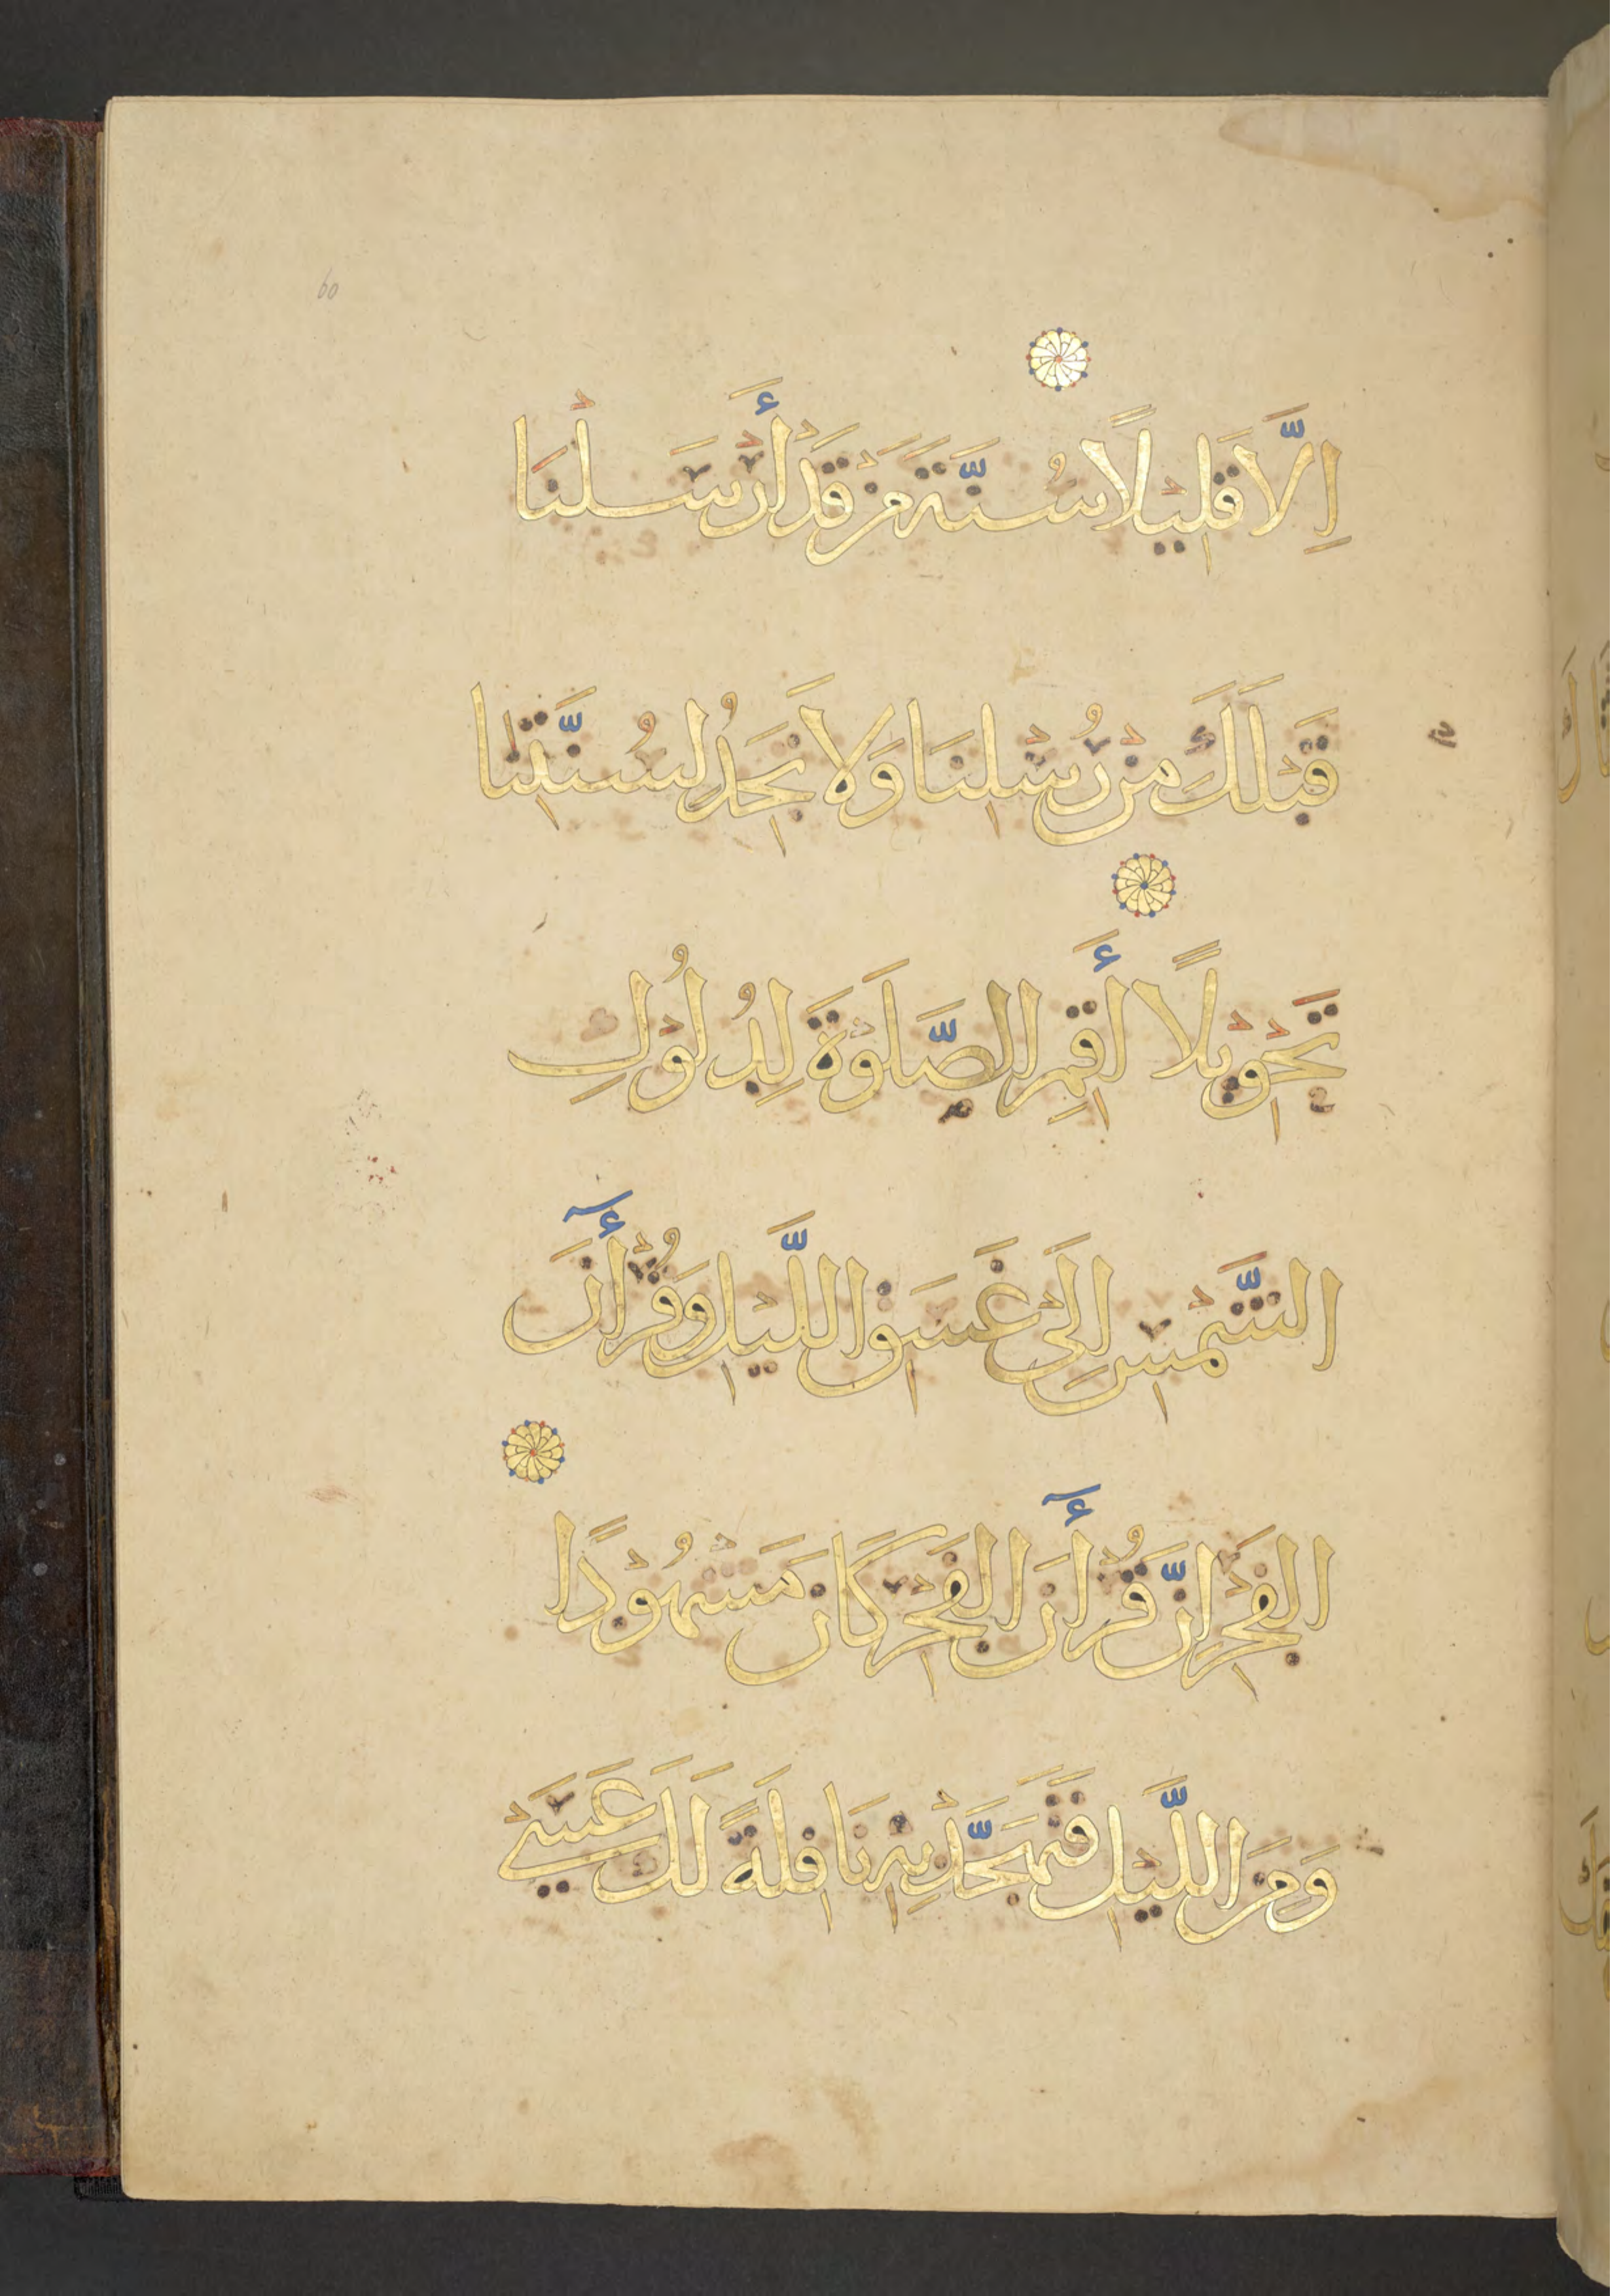 60
اِلَّا قَلِيْلًا سُنَّةَ مَنْ قَدْ أَرْسَلْنَا
قَبْلَكَ مِنْ رُسُلِنَا وَلَا تَجِدُ لِسُنَّتِنَا
تَحْوِيْلًا أَقِمِ الصَّلَوٰةَ لِدُلُوْكِ
الشَّمْسِ اِلَى غَسَقِ اللَّيْلِ وَقُرْأٓنَ
الفَجْرِ اِنَّ قُرْأٓنَ الفَجْرِ كَانَ مَشْهُوْدًا
وَمِنَ اللَّيْلِ فَتَهَجَّدْ بِهِ نَافِلَةً لَكَ عَسَىْ